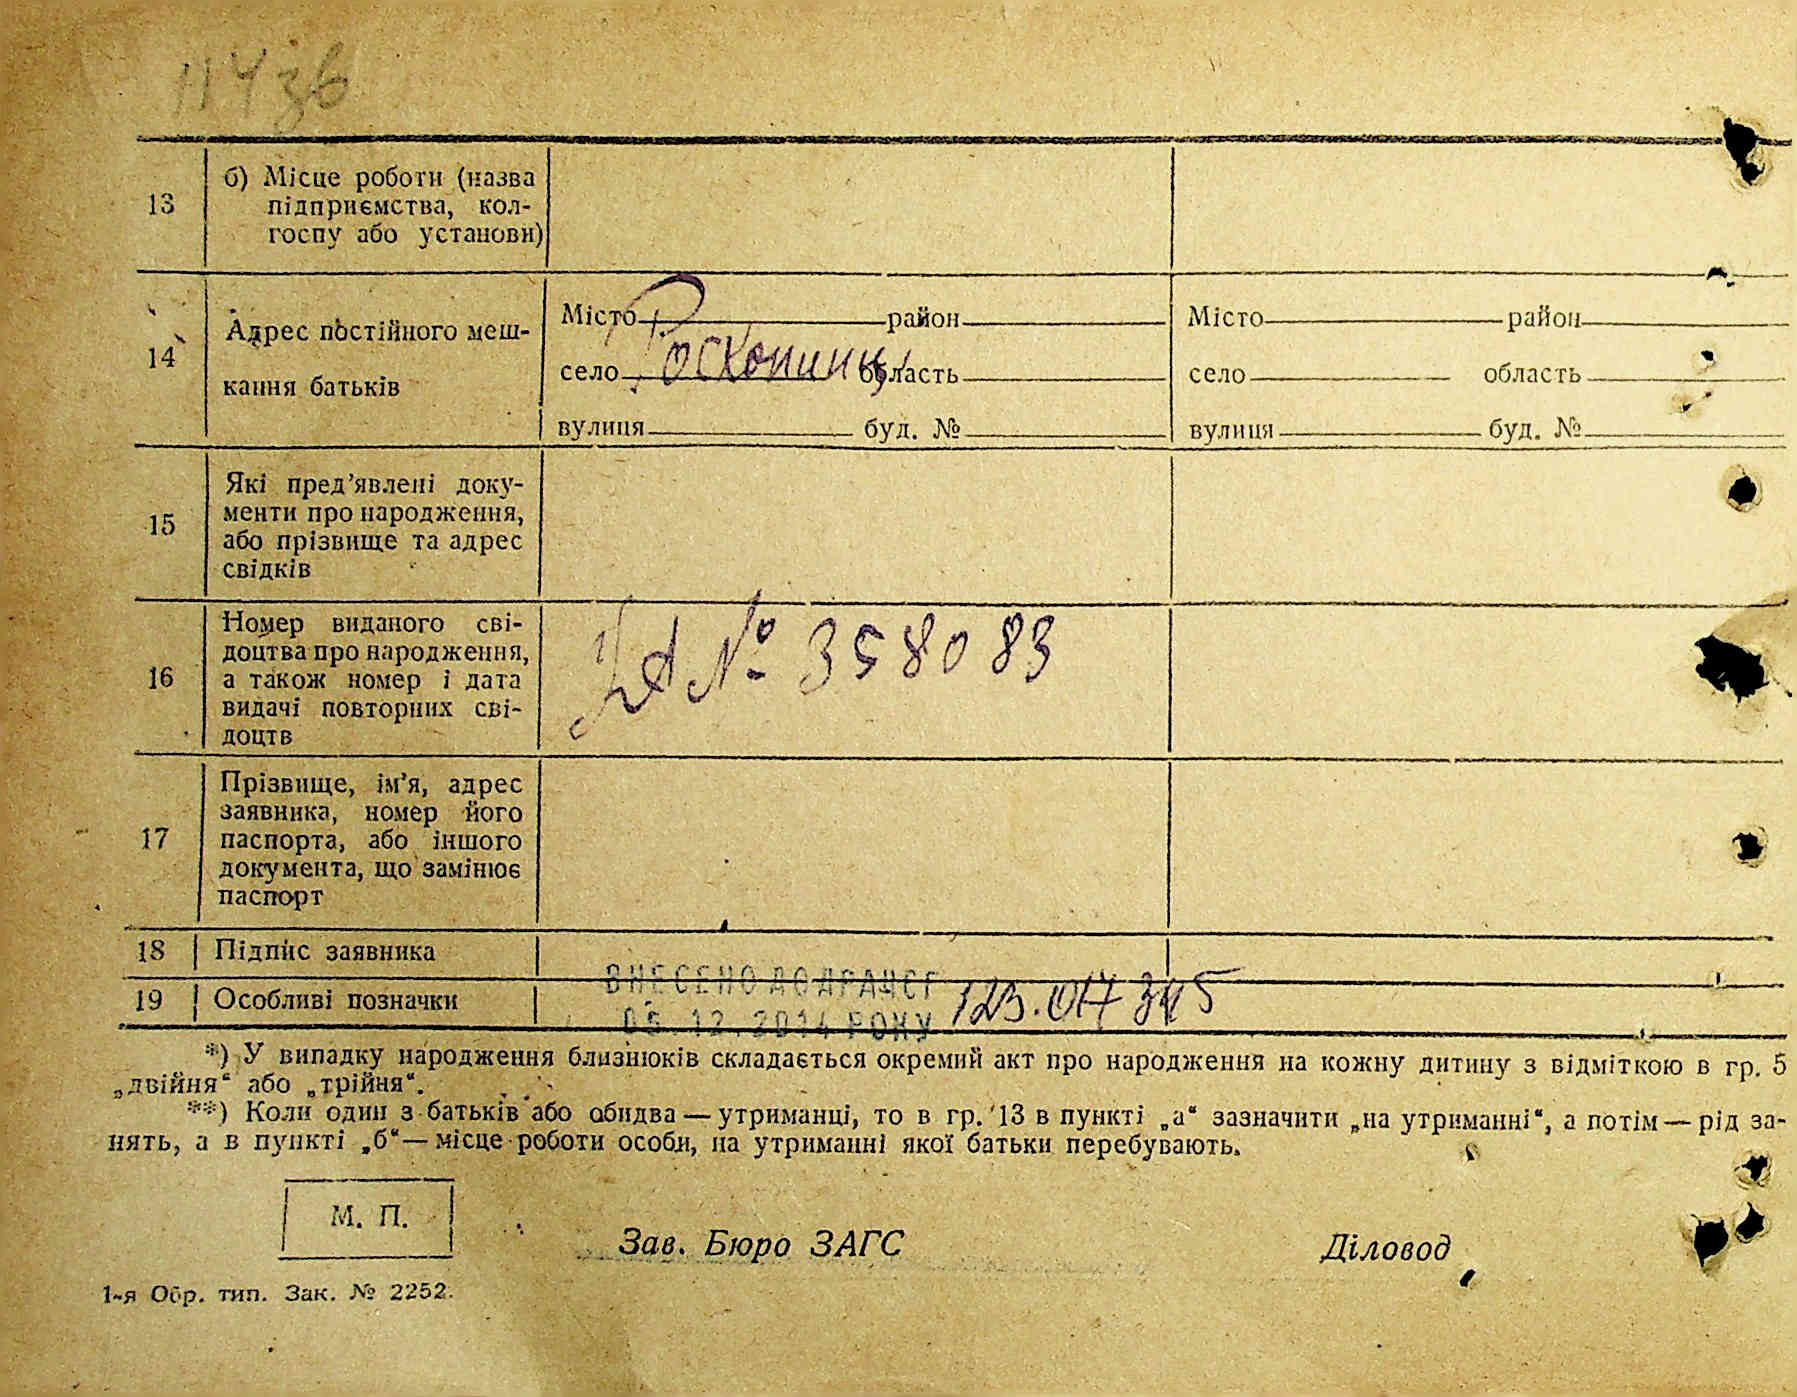 114 зв
13
б) Місце роботи (назва
підприємства, кол-
госпу або установи)
14
Адрес постійного меш-
кання батьків
Місто район
село Росхопинці область
вулиця буд. №
Місто район
село область
вулиця буд. №
15
Які пред'явлені доку-
менти про народження,
або прізвище та адрес
свідків
16
Номер виданого сві-
доцтва про народження,
а також номер і дата
видачі повторних сві-
доцтв
№ 358083
17
Прізвище, ім'я, адрес
заявника, номер його
паспорта, або іншого
документа, що замінює
паспорт
18 Підпис заявника
19 Особливі позначки
ВНЕСЕНО ДО ДРАЦСГ
05.12.2014 РОКУ
123.017 345
*) У випадку народження близнюків складається окремий акт про народження на кожну дитину з відміткою в гр. 5
„двійня“ або „трійня“.
**) Коли один з батьків або обидва — утриманці, то в гр. 13 в пункті „а“ зазначити „на утриманні“, а потім — рід за-
нять, а в пункті „б“ — місце роботи особи, на утриманні якої батьки перебувають.
М. П.
Зав. Бюро ЗАГС
Діловод
1-я Обр. тип. Зак. № 2252.